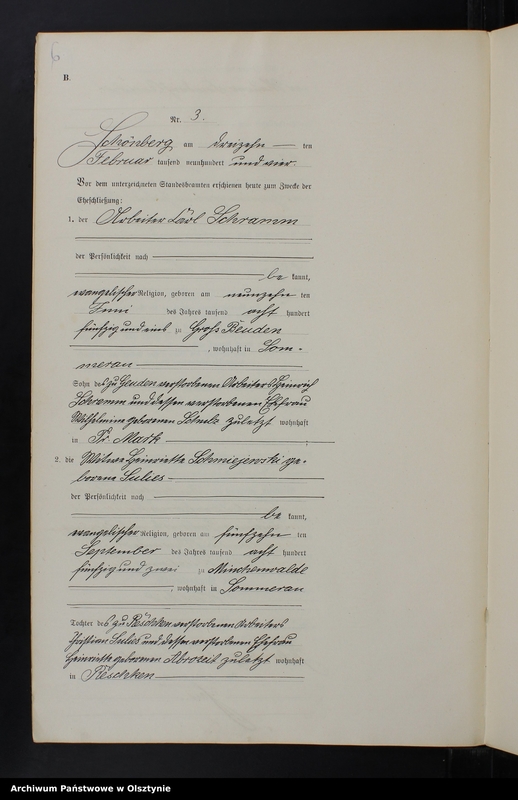 6
B.
Nr. 3.
Schönberg am dreizehn ten
Februar tausend neunhundert und vier.
Vor dem unterzeichneten Standesbeamten erschienen heute zum Zwecke der
Eheschließung:
1. der Arbeiter Carl Schramm
der Persönlichkeit nach
be kannt,
evangelischer Religion, geboren am neunzehn ten
Juni des Jahres tausend acht hundert
fünfzig und eins zu Groß Beuden
, wohnhaft in Som-
merau
Sohn des zu verstorbenen Arbeiters Heinrich
Schramm und dessen verstorbenen Ehefrau
Wilhelmine geborenen zuletzt wohnhaft
in Pr. Mark
2. die Witwe Heinriette Schmiejewski ge-
borene Sulies
der Persönlichkeit nach
be kannt,
evangelischer Religion, geboren am fünfzehn ten
September des Jahres tausend acht hundert
fünfzig und zwei zu Münchenwalde
, wohnhaft in Sommerau
Tochter des zu Reschken verstorbenen Arbeiters
Christian Sulies und dessen verstorbenen Ehefrau
Heinriette geborenen zuletzt wohnhaft
in Reschken
Archiwum Państwowe w Olsztynie